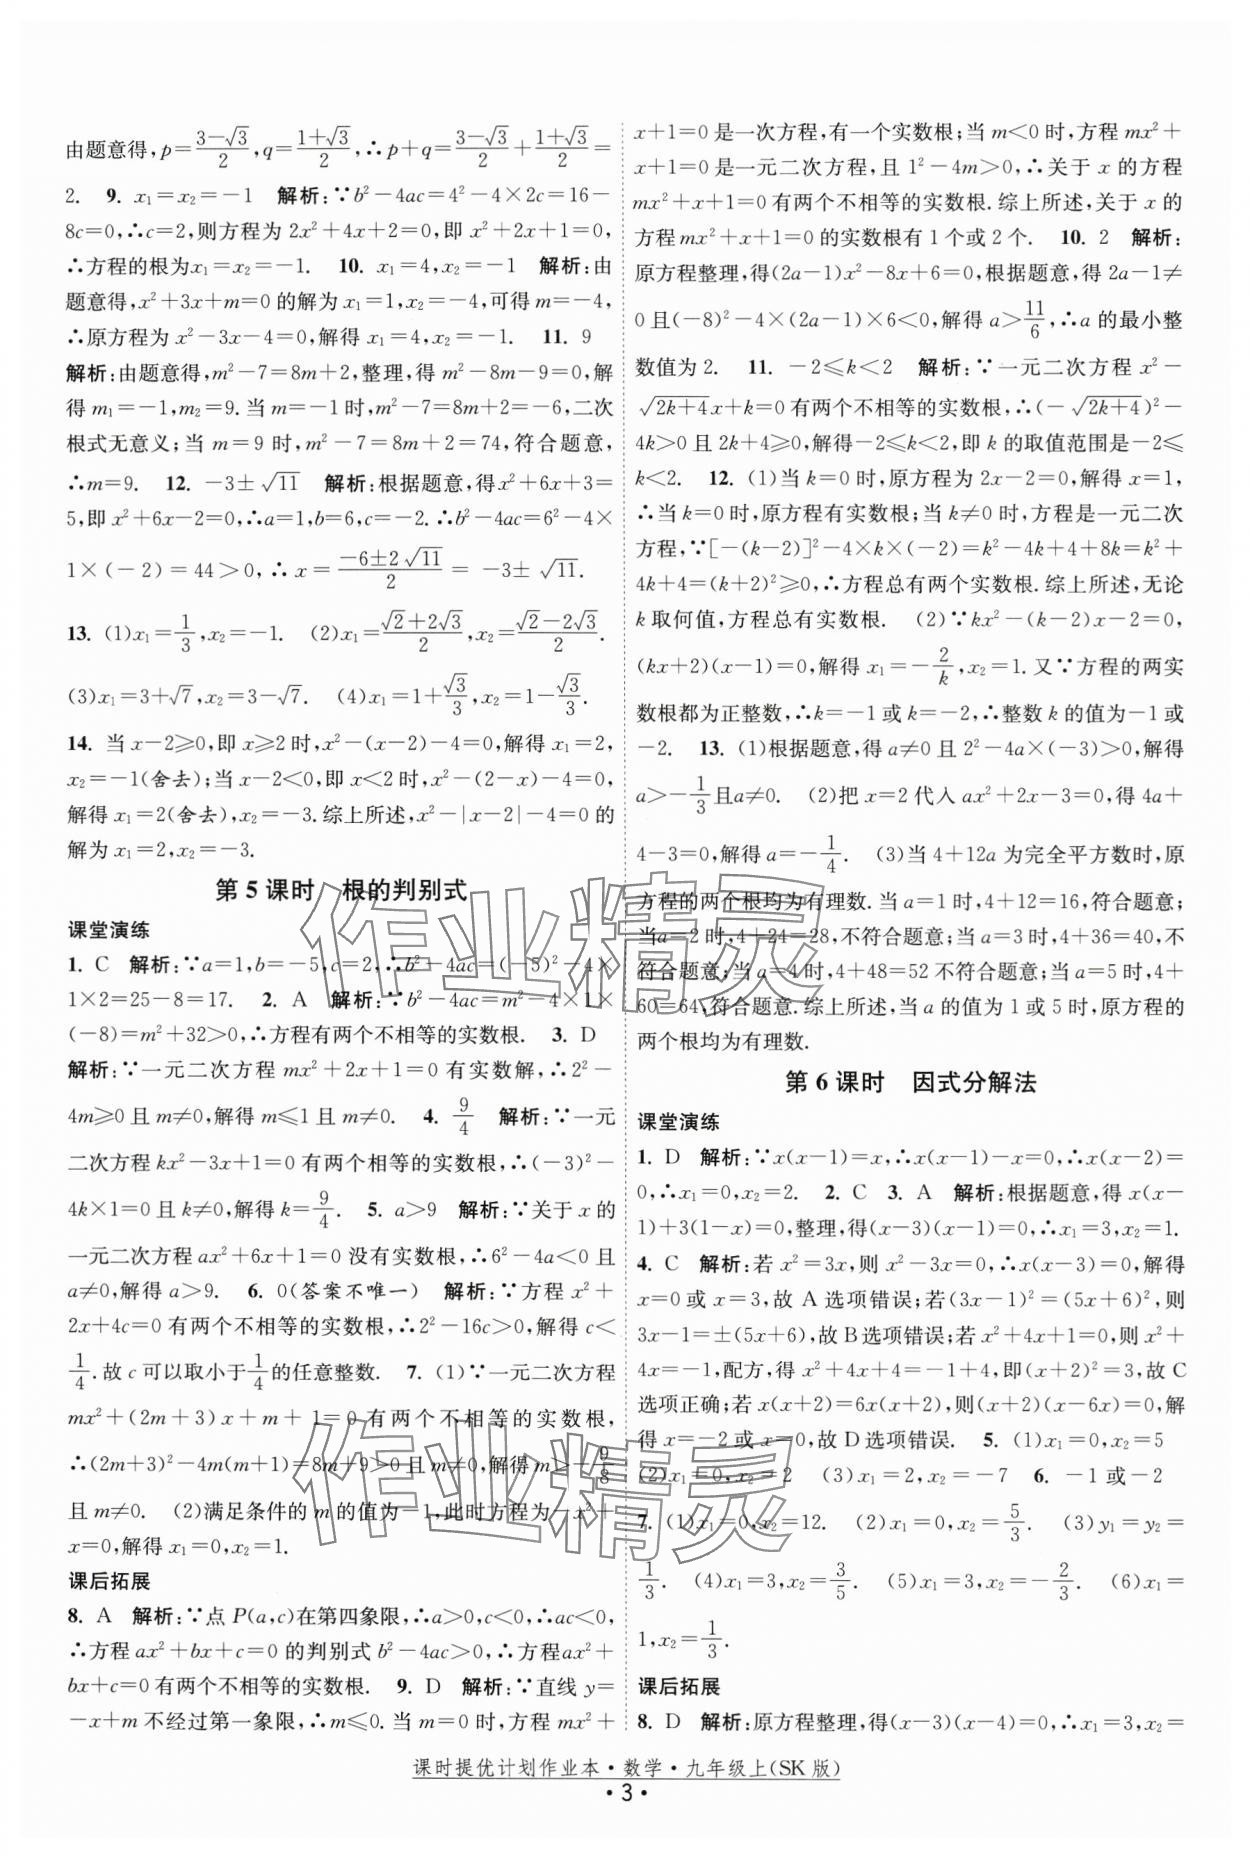 由题意得,p=(3-√3)/2,q=(1+√3)/2,∴p+q=(3-√3)/2+(1+√3)/2=
2. 9. x₁=x₂=-1 解析:∵b²-4ac=4²-4×2c=16-
8c=0,∴c=2,则方程为 2x²+4x+2=0,即 x²+2x+1=0,
∴方程的根为x₁=x₂=-1. 10. x₁=4,x₂=-1 解析:由
题意得,x²+3x+m=0 的解为 x₁=1,x₂=-4,可得 m=-4,
∴原方程为 x²-3x-4=0,解得 x₁=4,x₂=-1. 11. 9
解析:由题意得,m²-7=8m+2,整理,得 m²-8m-9=0,解
得 m₁=-1,m₂=9.当 m=-1 时,m²-7=8m+2=-6,二次
根式无意义;当 m=9 时,m²-7=8m+2=74,符合题意,
∴m=9. 12. -3±√11 解析:根据题意,得x²+6x+3=
5,即 x²+6x-2=0,∴a=1,b=6,c=-2.∴b²-4ac=6²-4×
1×(-2)=44>0,∴x=(-6±2√11)/2=-3±√11.
13. (1)x₁=1/3,x₂=-1. (2)x₁=(√2+2√3)/2,x₂=(√2-2√3)/2.
(3)x₁=3+√7,x₂=3-√7. (4)x₁=1+√3/3,x₂=1-√3/3.
14. 当 x-2≥0,即 x≥2 时,x²-(x-2)-4=0,解得 x₁=2,
x₂=-1(舍去);当 x-2<0,即 x<2 时,x²-(2-x)-4=0,
解得 x₁=2(舍去),x₂=-3.综上所述,x²-|x-2|-4=0 的
解为 x₁=2,x₂=-3.
第 5 课时 根的判别式
课堂演练
1. C 解析:∵a=1,b=-5,c=2,∴b²-4ac=(-5)²-4×
1×2=25-8=17. 2. A 解析:∵b²-4ac=m²-4×1×
(-8)=m²+32>0,∴方程有两个不相等的实数根. 3. D
解析:∵一元二次方程 mx²+2x+1=0 有实数解,∴2²-
4m≥0 且 m≠0,解得 m≤1 且 m≠0. 4. 9/4 解析:∵一元
二次方程 kx²-3x+1=0 有两个相等的实数根,∴(-3)²-
4k×1=0 且 k≠0,解得 k=9/4. 5. a>9 解析:∵关于 x 的
一元二次方程 ax²+6x+1=0 没有实数根,∴6²-4a<0 且
a≠0,解得 a>9. 6. 0(答案不唯一) 解析:∵方程 x²+
2x+4c=0 有两个不相等的实数根,∴2²-16c>0,解得 c<
1/4.故 c 可以取小于1/4的任意整数. 7. (1)∵一元二次方程
mx²+(2m+3)x+m+1=0 有两个不相等的实数根,
∴(2m+3)²-4m(m+1)=8m+9>0 且 m≠0,解得 m>-9/8
且 m≠0. (2)满足条件的 m的值为-1,此时方程为-x²+
x=0,解得 x₁=0,x₂=1.
课后拓展
8. A 解析:∵点 P(a,c)在第四象限,∴a>0,c<0,∴ac<0,
∴方程 ax²+bx+c=0 的判别式 b²-4ac>0,∴方程ax²+
bx+c=0 有两个不相等的实数根. 9. D 解析:∵直线 y=
-x+m 不经过第一象限,∴m≤0.当 m=0 时,方程 mx²+
x+1=0 是一次方程,有一个实数根;当 m<0 时,方程 mx²+
x+1=0 是一元二次方程,且 1²-4m>0,∴关于 x 的方程
mx²+x+1=0 有两个不相等的实数根.综上所述,关于 x 的
方程mx²+x+1=0 的实数根有 1 个或 2 个. 10. 2 解析:
原方程整理,得(2a-1)x²-8x+6=0,根据题意,得 2a-1≠
0 且(-8)²-4×(2a-1)×6<0,解得 a>11/6,∴a 的最小整
数值为 2. 11. -2≤k<2 解析:∵一元二次方程 x²-
√(2k+4)x+k=0 有两个不相等的实数根,∴(-√(2k+4))²-
4k>0 且 2k+4≥0,解得-2≤k<2,即 k 的取值范围是-2≤
k<2. 12. (1)当 k=0 时,原方程为 2x-2=0,解得 x=1,
∴当 k=0 时,原方程有实数根;当 k≠0 时,方程是一元二次
方程,∵[-(k-2)]²-4×k×(-2)=k²-4k+4+8k=k²+
4k+4=(k+2)²≥0,∴方程总有两个实数根.综上所述,无论
k 取何值,方程总有实数根. (2)∵kx²-(k-2)x-2=0,
(kx+2)(x-1)=0,解得 x₁=-2/k,x₂=1.又∵方程的两实
数根都为正整数,∴k=-1 或 k=-2,∴整数 k 的值为-1 或
-2. 13. (1)根据题意,得 a≠0 且 2²-4a×(-3)>0,解得
a>-1/3且a≠0. (2)把 x=2 代入 ax²+2x-3=0,得 4a+
4-3=0,解得 a=-1/4. (3)当 4+12a 为完全平方数时,原
方程的两个根均为有理数.当 a=1 时,4+12=16,符合题意;
当a=2 时,4+24=28,不符合题意;当 a=3 时,4+36=40,不
符合题意;当 a=4 时,4+48=52 不符合题意;当 a=5 时,4+
60=64,符合题意.综上所述,当 a 的值为 1 或 5 时,原方程的
两个根均为有理数.
第 6 课时 因式分解法
课堂演练
1. D 解析:∵x(x-1)=x,∴x(x-1)-x=0,∴x(x-2)=
0,∴x₁=0,x₂=2. 2. C 3. A 解析:根据题意,得 x(x-
1)+3(1-x)=0,整理,得(x-3)(x-1)=0,∴x₁=3,x₂=1.
4. C 解析:若 x²=3x,则 x²-3x=0,∴x(x-3)=0,解得
x=0 或 x=3,故 A 选项错误;若(3x-1)²=(5x+6)²,则
3x-1=±(5x+6),故 B选项错误;若 x²+4x+1=0,则 x²+
4x=-1,配方,得 x²+4x+4=-1+4,即(x+2)²=3,故 C
选项正确;若 x(x+2)=6x(x+2),则(x+2)(x-6x)=0,解
得 x=-2 或 x=0,故 D 选项错误. 5. (1)x₁=0,x₂=5
(2)x₁=0,x₂=2 (3)x₁=2,x₂=-7 6. -1 或-2
7. (1)x₁=0,x₂=12. (2)x₁=0,x₂=5/3. (3)y₁=y₂=
1/3. (4)x₁=3,x₂=3/5. (5)x₁=3,x₂=-2/3. (6)x₁=
1,x₂=1/3.
课后拓展
8. D 解析:原方程整理,得(x-3)(x-4)=0,∴x₁=3,x₂=
作业精灵
作业精灵
课时提优计划作业本·数学·九年级上(SK 版)
·3·